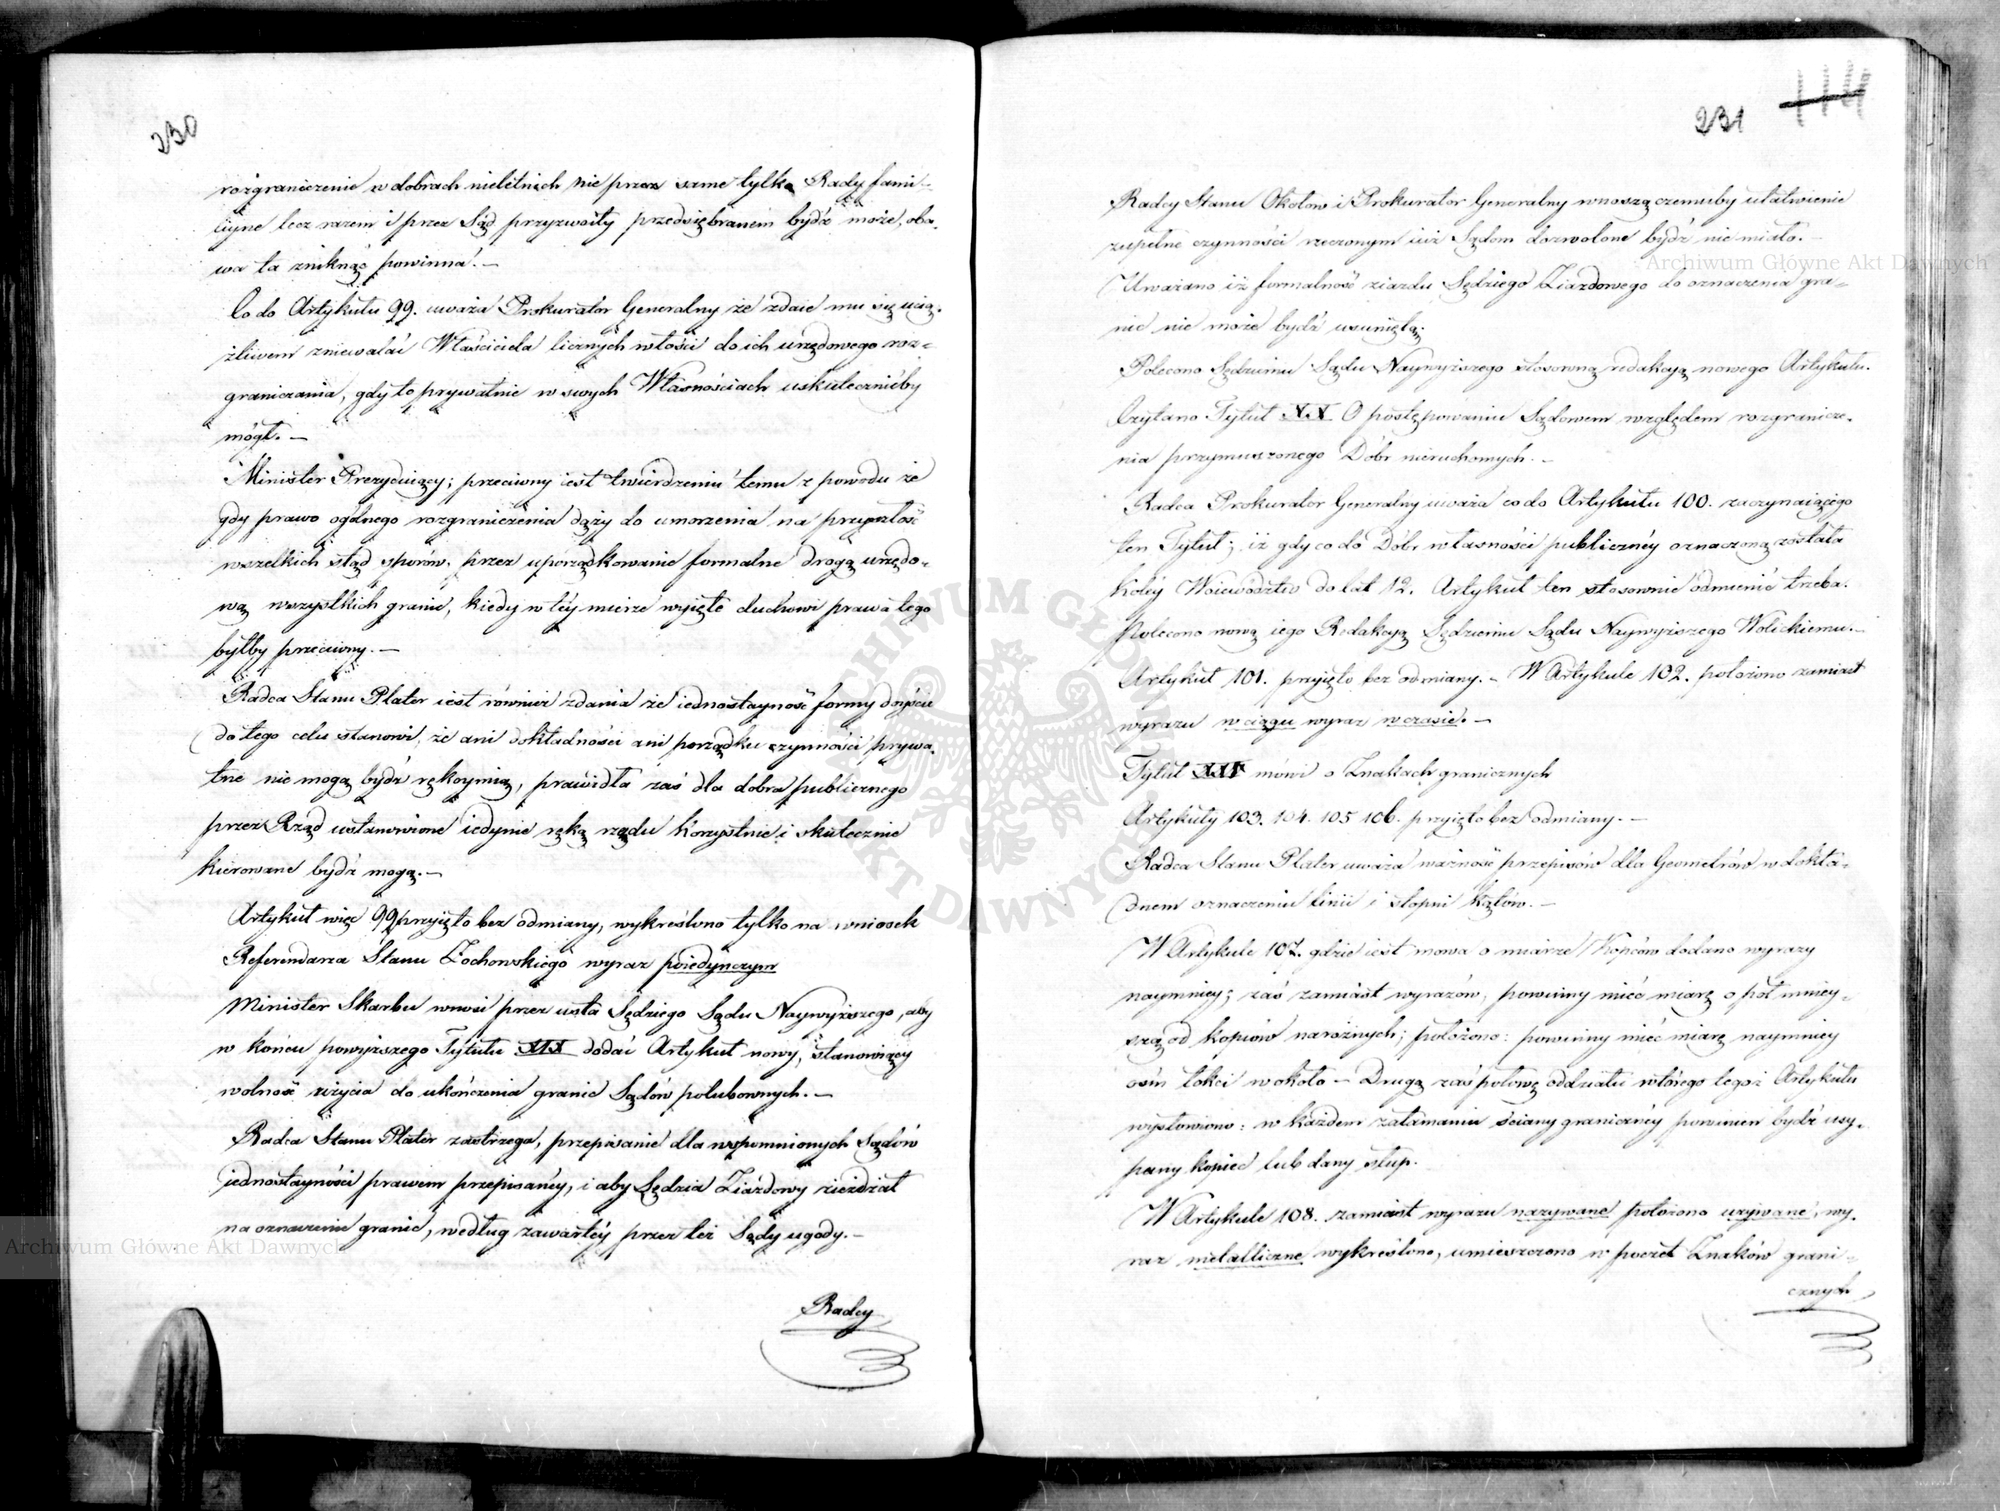 230
rozgraniczenie w dobrach nieletnich nie przez same tylko Rady fami-
liyne lecz razem i przez Sąd przyzwoity przedsiębranem bydź może, oba-
wa ta zniknąć powinna. —
Co do Artykułu 99. uważa Prokurator Generalny że zdaie mu się ucią-
żliwem zniewalać Właściciela licznych włości do ich urzędowego roz-
graniczania, gdy to prywatnie w swych Własnościach uskutecznićby
mógł. —
Minister Prezyduiący; przeciwny iest twierdzeniu temu z powodu że
gdy prawo ogólnego rozgraniczenia dąży do umorzenia na przyszłość
wszelkich stąd sporów, przez uporządkowanie formalne drogą urzędo-
wą wszystkich granic, kiedy w téy mierze wyięte duchowi prawa tego
byłby przeciwny. —
Radca Stanu Plater iest również zdania że iednostayność formy doyściu
do tego celu stanowi, że ani dokładności ani porządku czynności prywa-
tne nie mogą bydź rękoymią, prawidła zaś dla dobra publicznego
przez Rząd ustanowione iedynie ręką rządu korzystnie i skutecznie
kierowane bydź mogą. —
Artykuł więc 99 przyięto bez odmiany, wykreślono tylko na wniosek
Referendarza Stanu Żochowskiego wyraz poiedynczym
Minister Skarbu wnosi przez usta Sędziego Sądu Naywyższego, aby
w końcu powyższego Tytułu XIX dodać Artykuł nowy, stanowiący
wolność użycia do ukończenia granic Sądów polubownych. —
Radca Stanu Plater zastrzega, przepisanie dla wspomnionych Sądów
jednostayności prawem przepisanéy, i aby Sędzia Ziazdowy zieżdżał
na oznaczenie granic, według zawartéy przez też Sądy ugody. —
Radcy
231 114
Radcy Stanu Okołow i Prokurator Generalny wnoszą czemuby ułatwienie
zupełne czynności rzeczonym iuż Sądom dozwolone bydź nie miało. —
Uważano iż formalność ziazdu Sędziego Ziazdowego do oznaczenia gra-
nic nie może bydź usuniętą.
Polecono Sędziemu Sądu Naywyższego stosowną redakcyą nowego Artykułu.
Czytano Tytuł XX O postępowaniu Sądowem względem rozgranicze-
nia przymuszonego Dóbr nieruchomych. —
Radca Prokurator Generalny uważa co do Artykułu 100. zaczynaiącego
ten Tytuł; iż gdy co do Dóbr własności publicznéy oznaczoną została
koléy Woiewództw do lat 12. Artykuł ten stosownie odmienić trzeba.
Polecono nową iego Redakcyą Sędziemu Sądu Naywyższego Wolickiemu. —
Artykuł 101. przyięto bez odmiany. — W Artykule 102. położono zamiast
wyrazu w ciągu wyraz w czasie. —
Tytuł XXI mówi o Znakach granicznych
Artykuły 103. 104. 105 106. przyięto bez odmiany. —
Radca Stanu Plater uważa ważność przepisów dla Geometrów w dokła-
dnem oznaczeniu linii i stopni kątów. —
W Artykule 107. gdzie iest mowa o miarze Kopców dodano wyrazy
naymniey; zaś zamiast wyrazów, powinny mieć miarę o pół mniey-
szą od kopców narożnych; położono: powinny mieć miarę naymniey
ośm łokci w około — Drugą zaś połowę oddziału wtórego tegoż Artykułu
wysłowiono: w każdem załamaniu ściany granicznéy powinien bydź usy-
pany kopiec lub dany słup.
W Artykule 108. zamiast wyrazu nazywane położono używane, wy-
raz metalliczne wykreślono, umieszczono w poczet Znaków grani-
cznych